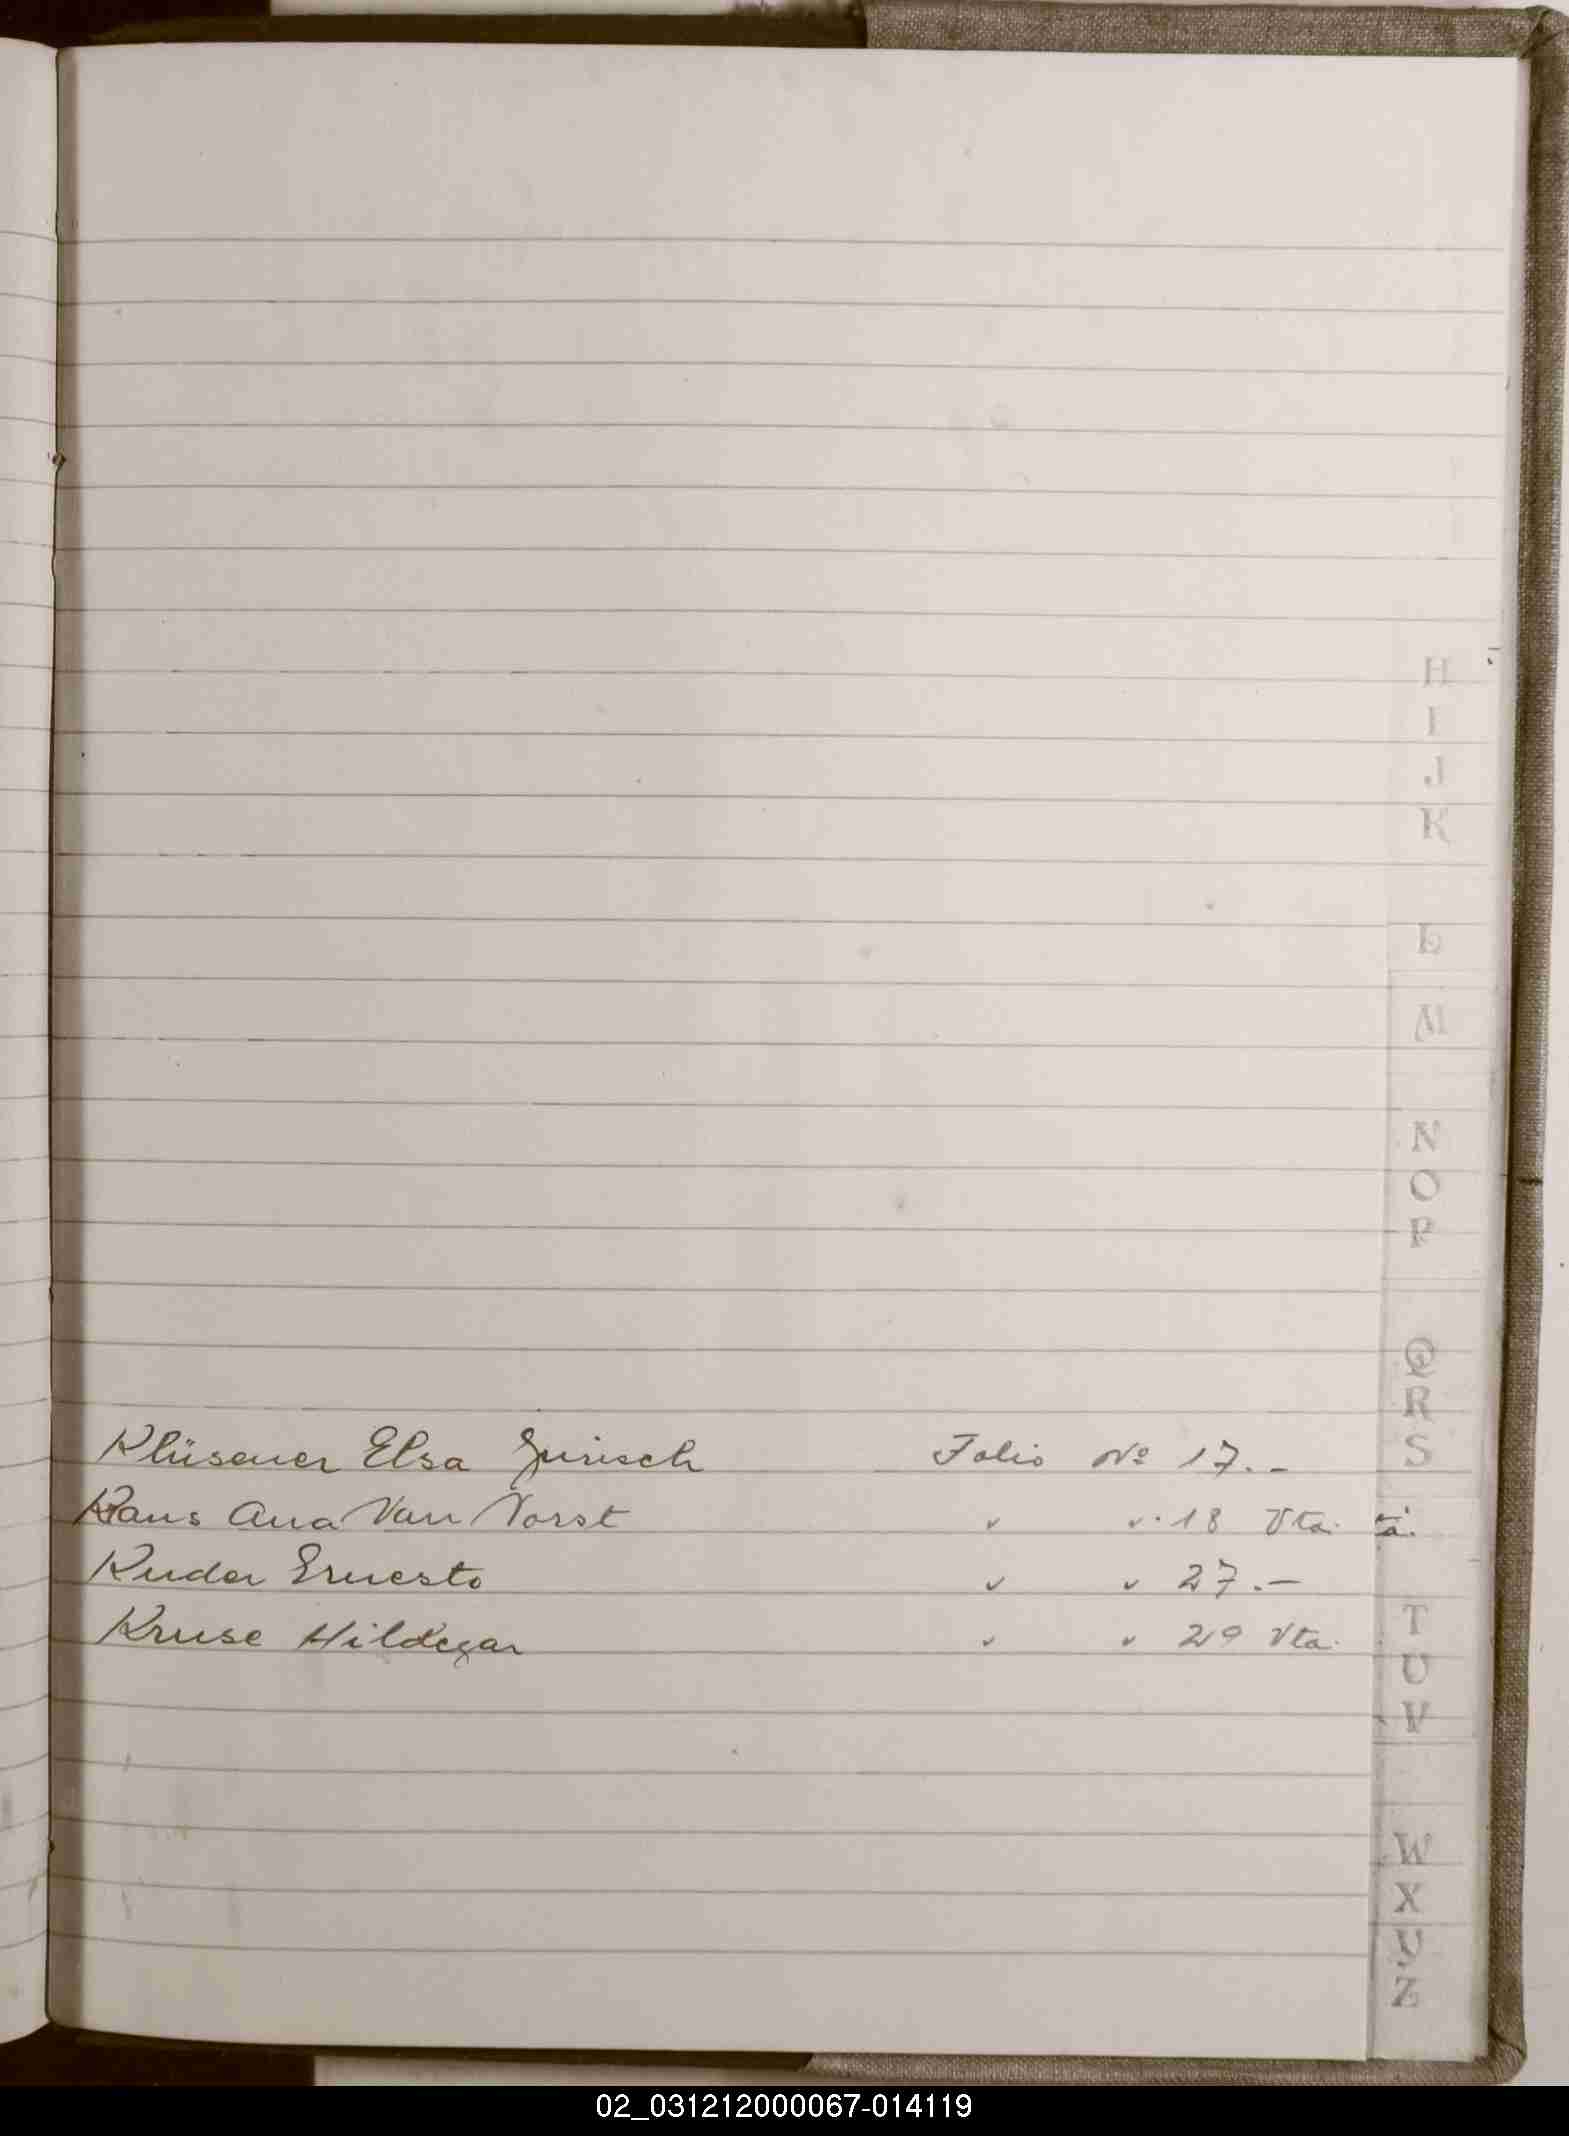 H
I
J
K
L
M
N
O
P
Q
R
S
Klüsener Elsa Jürisch Folio Nº 17.-
Kraus Ana Van Vorst " " 18 Vta. ta.
Kuder Ernesto " " 27.-
Kruse Hildegar " " 29 Vta.
T
U
V
W
X
Y
Z
02_031212000067-014119